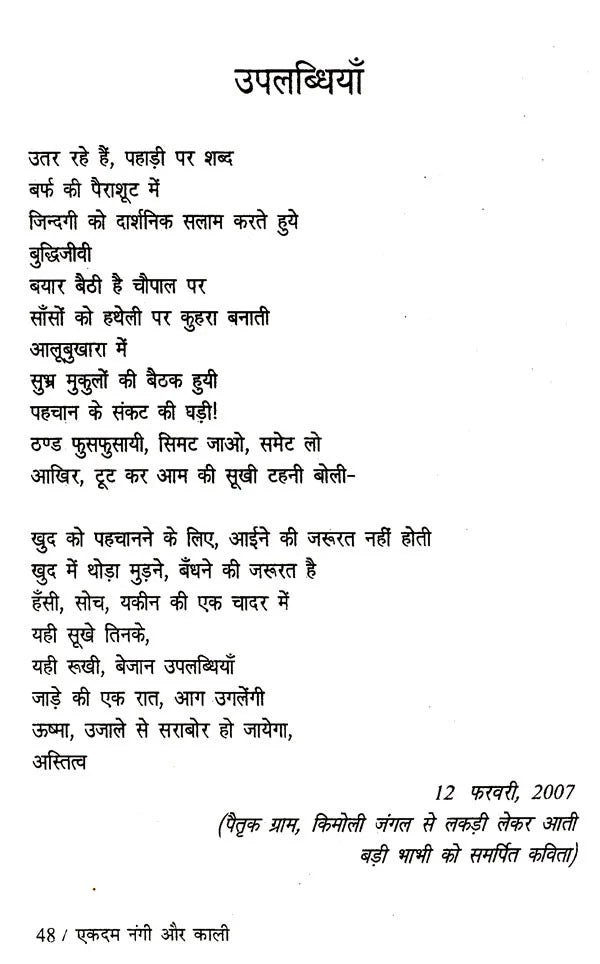 उपलब्धियाँ
उतर रहे हैं, पहाड़ी पर शब्द
बर्फ की पैराशूट में
जिन्दगी को दार्शनिक सलाम करते हुये
बुद्धिजीवी
बयार बैठी है चौपाल पर
साँसों को हथेली पर कुहरा बनाती
आलूबुखारा में
सुभ्र मुकुलों की बैठक हुयी
पहचान के संकट की घड़ी!
ठण्ड फुसफुसायी, सिमट जाओ, समेट लो
आखिर, टूट कर आम की सूखी टहनी बोली-
खुद को पहचानने के लिए, आईने की जरूरत नहीं होती
खुद में थोड़ा मुड़ने, बँधने की जरूरत है
हँसी, सोच, यकीन की एक चादर में
यही सूखे तिनके,
यही रूखी, बेजान उपलब्धियाँ
जाड़े की एक रात, आग उगलेंगी
ऊष्मा, उजाले से सराबोर हो जायेगा,
अस्तित्व
12 फरवरी, 2007
(पैतृक ग्राम, किमोली जंगल से लकड़ी लेकर आती
बड़ी भाभी को समर्पित कविता)
48 / एकदम नंगी और काली